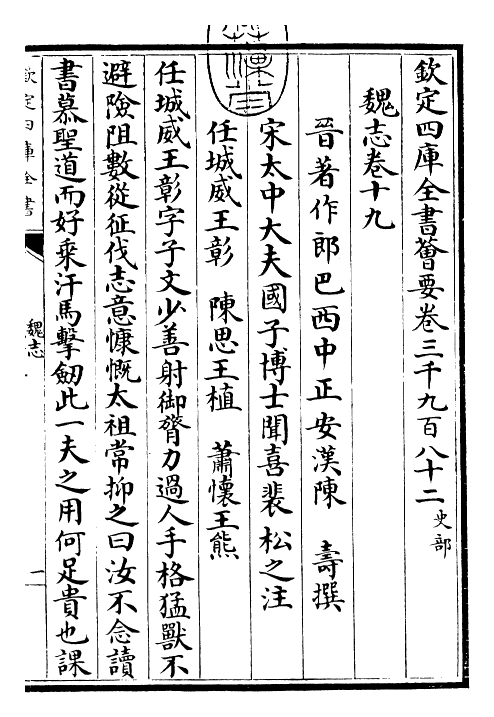 欽定四庫全書薈要卷三千九百八十二 史部
魏志卷十九
晉著作郎巴西中正安漢陳 壽撰
宋太中大夫國子博士聞喜裴松之注
任城威王彰 陳思王植 蕭懷王熊
任城威王彰字子文少善射御膂力過人手格猛獸不
避險阻數從征伐志意慷慨太祖常抑之曰汝不念讀
書慕聖道而好乗汗馬擊劒此一夫之用何足貴也課
欽定四庫全書
魏志
一